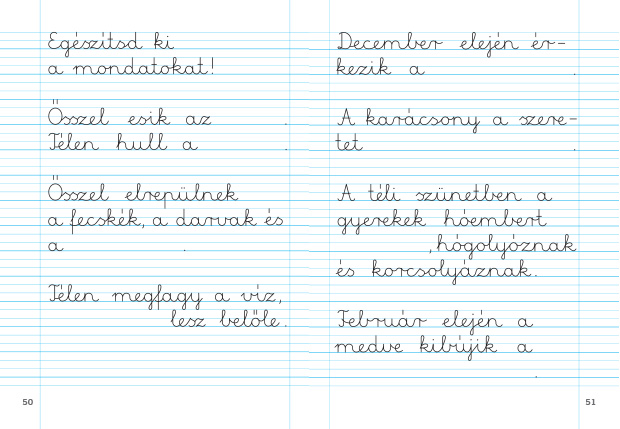 Egészítsd ki
a mondatokat!
Ősszel esik az .
Télen hull a .
Ősszel elrepülnek
a fecskék, a darvak és
a .
Télen megfagy a víz,
lesz belőle.
50
December elején ér-
kezik a .
A karácsony a szere-
tet .
A téli szünetben a
gyerekek hóembert
, hógolyóznak
és korcsolyáznak.
Február elején a
medve kibújik a
.
51